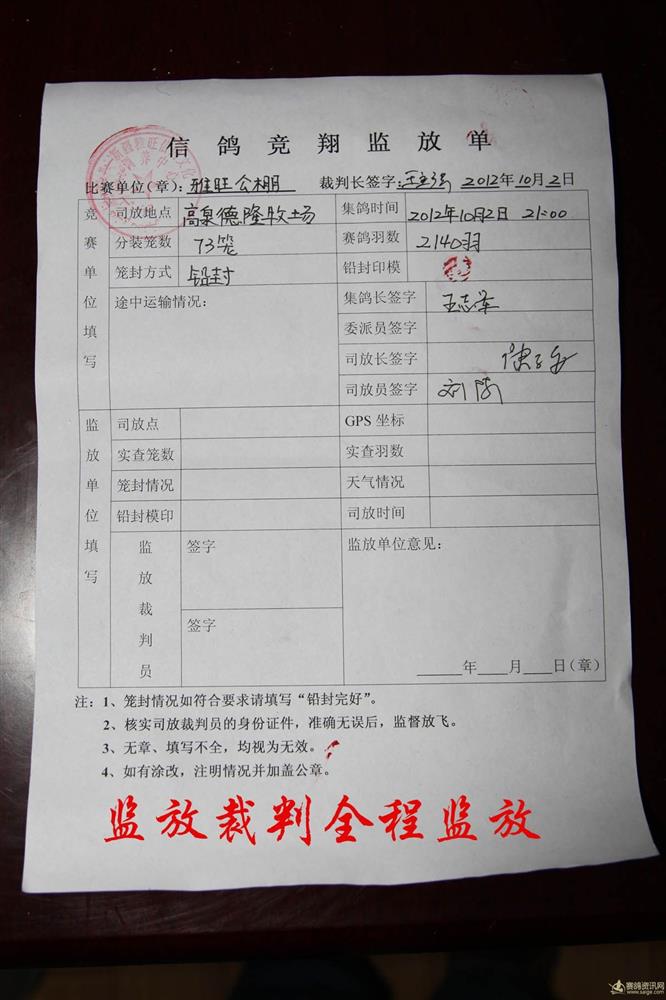 信鸽竞翔监放单
比赛单位(章)：雅旺公棚 裁判长签字： 2012年10月2日
竞赛单位填写
司放地点 高泉德隆牧场 集鸽时间 2012年10月2日 21:00
分装笼数 73笼 赛鸽羽数 2140羽
笼封方式 铅封 铅封印模
途中运输情况： 集鸽长签字
委派员签字
司放长签字
司放员签字 刘
监放单位填写
司放点 GPS 坐标
实查笼数 实查羽数
笼封情况 天气情况
铅封模印 司放时间
监放裁判员 签字 监放单位意见：
签字
年 月 日（章）
注：1、笼封情况如符合要求请填写“铅封完好”。
2、核实司放裁判员的身份证件，准确无误后，监督放飞。
3、无章、填写不全，均视为无效。
4、如有涂改，注明情况并加盖公章。
监放裁判全程监放
赛鸽资讯网
www.saige.com